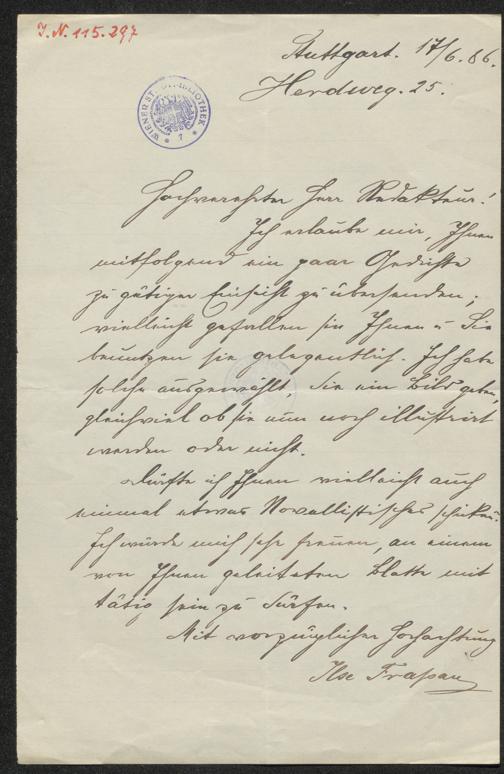 J. N. 115.297
Stuttgart. 17/6. 86.
Herdweg. 25.
WIENER STADTBIBLIOTHEK
7
Hochverehrter Herr Redakteur!
Ich erlaube mir, Ihnen
mitfolgend ein paar Gedichte
zu gütiger Einsicht zu übersenden;
vielleicht gefallen sie Ihnen u Sie
benutzen sie gelegentlich. Ich habe
solche ausgewählt, die ein Bild geben,
gleichviel ob sie nun noch illustrirt
werden oder nicht.
Dürfte ich Ihnen vielleicht auch
einmal etwas Novellistisches schicken?
Ich würde mich sehr freuen, an einem
von Ihnen geleiteten Blatte mit
tätig sein zu dürfen.
Mit vorzüglicher Hochachtung
Ilse Frapan